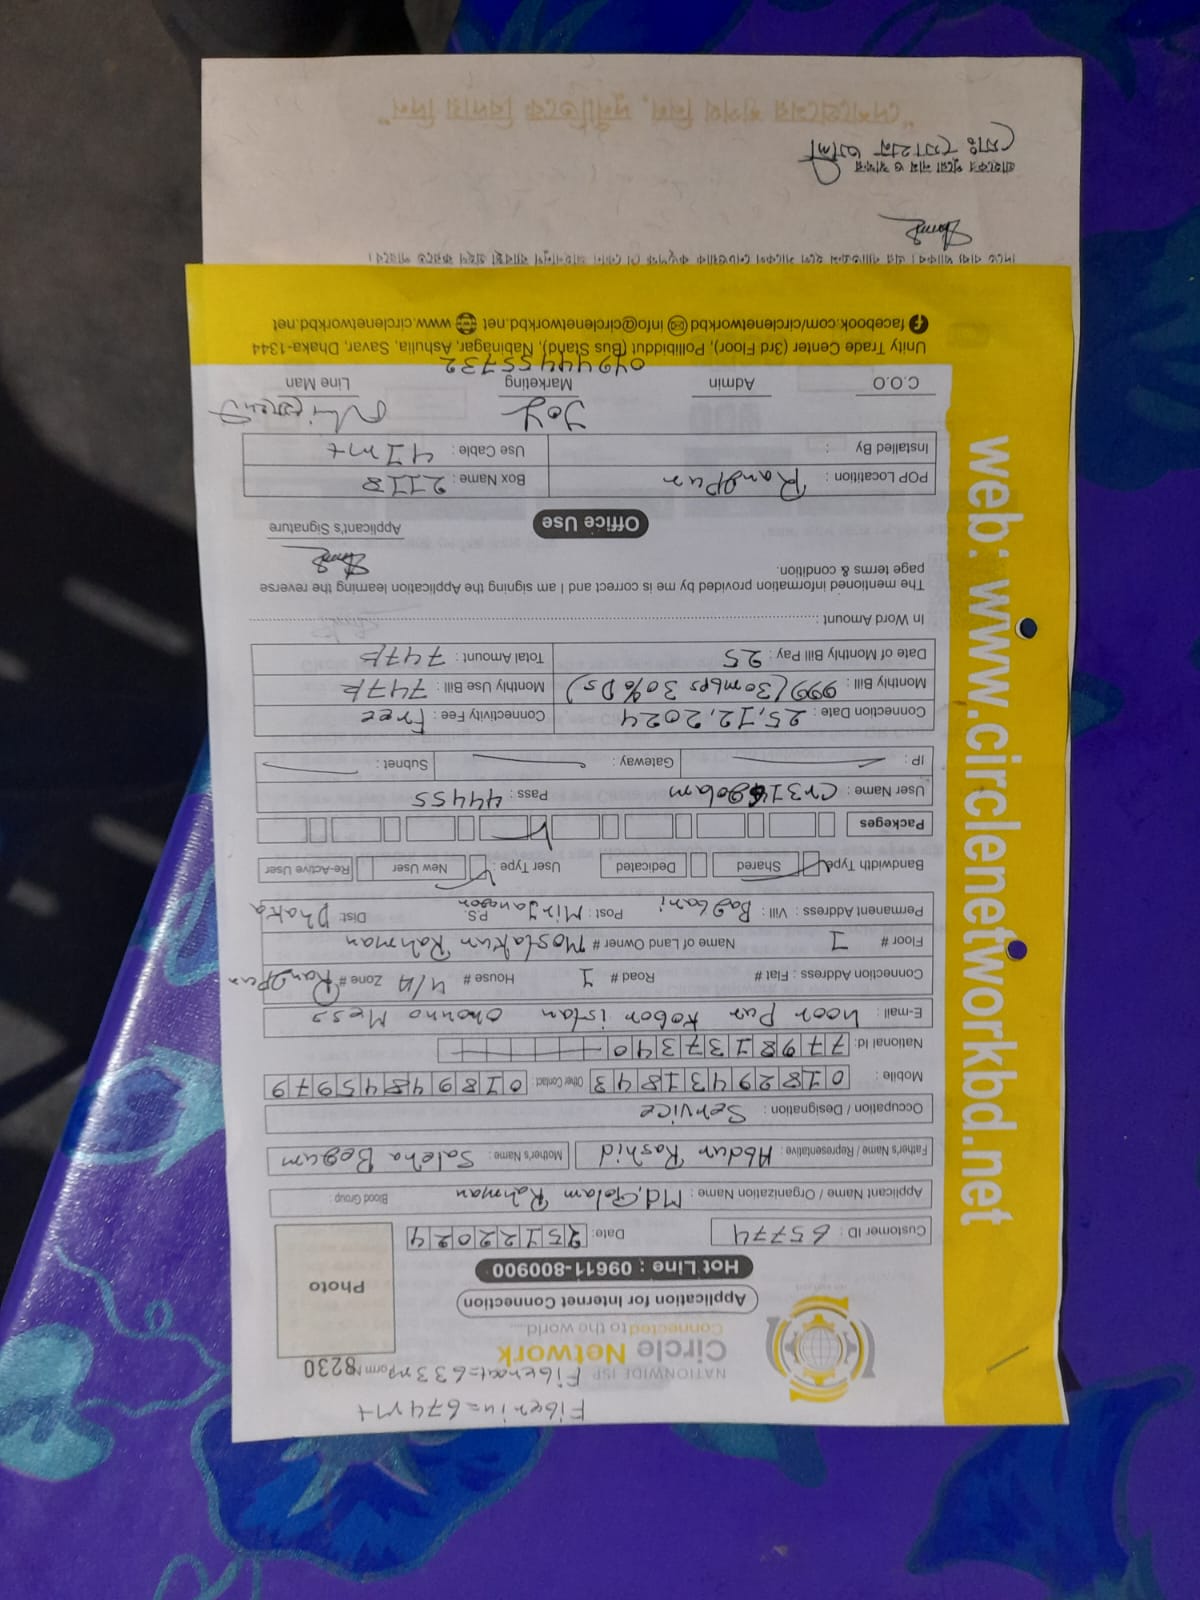 Fiber in = 674 mt
Fiber out = 633 m
NATIONWIDE ISP
Form № 8230
Circle Network
Connected to the world....
Application for Internet Connection
Hot Line : 09611-800900
Photo
Customer ID : 65774 Date: 25122024
Applicant Name / Organization Name : Md. Golam Rahman Blood Group :
Father's Name / Representative : Abdur Rashid Mother's Name : Saleha Begum
Occupation / Designation : Service
Mobile : 01829431843 Other Contact : 01894845979
National Id : 7798137340
E-mail : Noor Pur Kobor istan Mess
Connection Address : Flat # Road # 1 House # 4/A Zone # RangPur
Floor # 1 Name of Land Owner # Mostakur Rahman
Permanent Address : Vill : Post : P.S: Dist: Dhaka
Bandwidth Type Shared Dedicated User Type : New User Re-Active User
Packeges
User Name : Pass : 44455
IP : Gateway : Subnet :
Connection Date : 25,12,2024 Connectivity Fee : Free
Monthly Bill : 999 (30mbps 30% Ds) Monthly Use Bill : 747/-
Date of Monthly Bill Pay : 25 Total Amount : 747/-
In Word Amount :
The mentioned information provided by me is correct and I am signing the Application learning the reverse
page terms & condition.
Applicant's Signature
Office Use
POP Locatition : RangPur Box Name : 2118
Installed By : Use Cable : 41mt
Joy
C.O.O Admin Marketing Line Man
049 4455732
Unity Trade Center (3rd Floor), Pollibiddut (Bus Stand), Nabinagar, Ashulia, Savar, Dhaka-1344
facebook.com/circlenetworkbd info@circlenetworkbd.net www.circlenetworkbd.net
web: www.circlenetworkbd.net
গ্রাহকের পুরো নাম ও স্বাক্ষর
"দেশপ্রেমের শপথ নিন, দুর্নীতিকে বিদায় দিন"